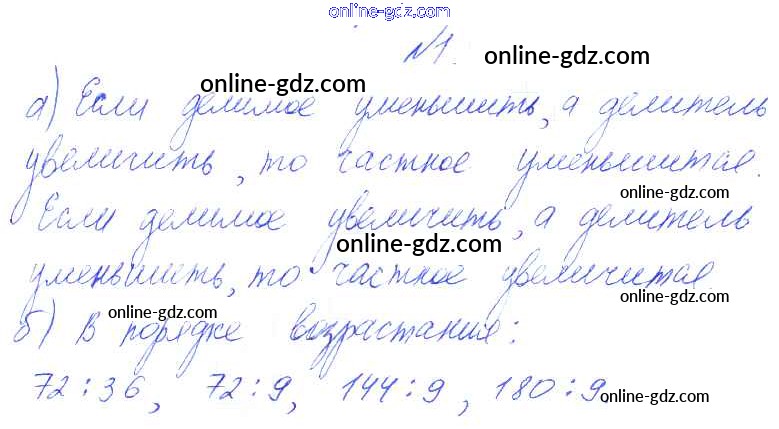 online-gdz.com
№1. online-gdz.com
online-gdz.com
а) Если делимое уменьшить, а делитель
увеличить, то частное уменьшится.
online-gdz.com
Если делимое увеличить, а делитель
online-gdz.com
уменьшить, то частное увеличится
online-gdz.com
online-gdz.com
б) В порядке возрастания:
72:36, 72:9, 144:9, 180:9.
online-gdz.com